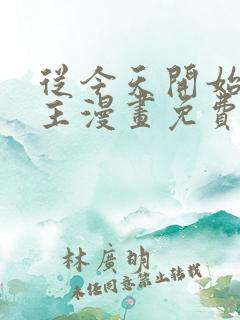 從今天開始
王漫畫免費
林廣明
未經同意禁止轉載